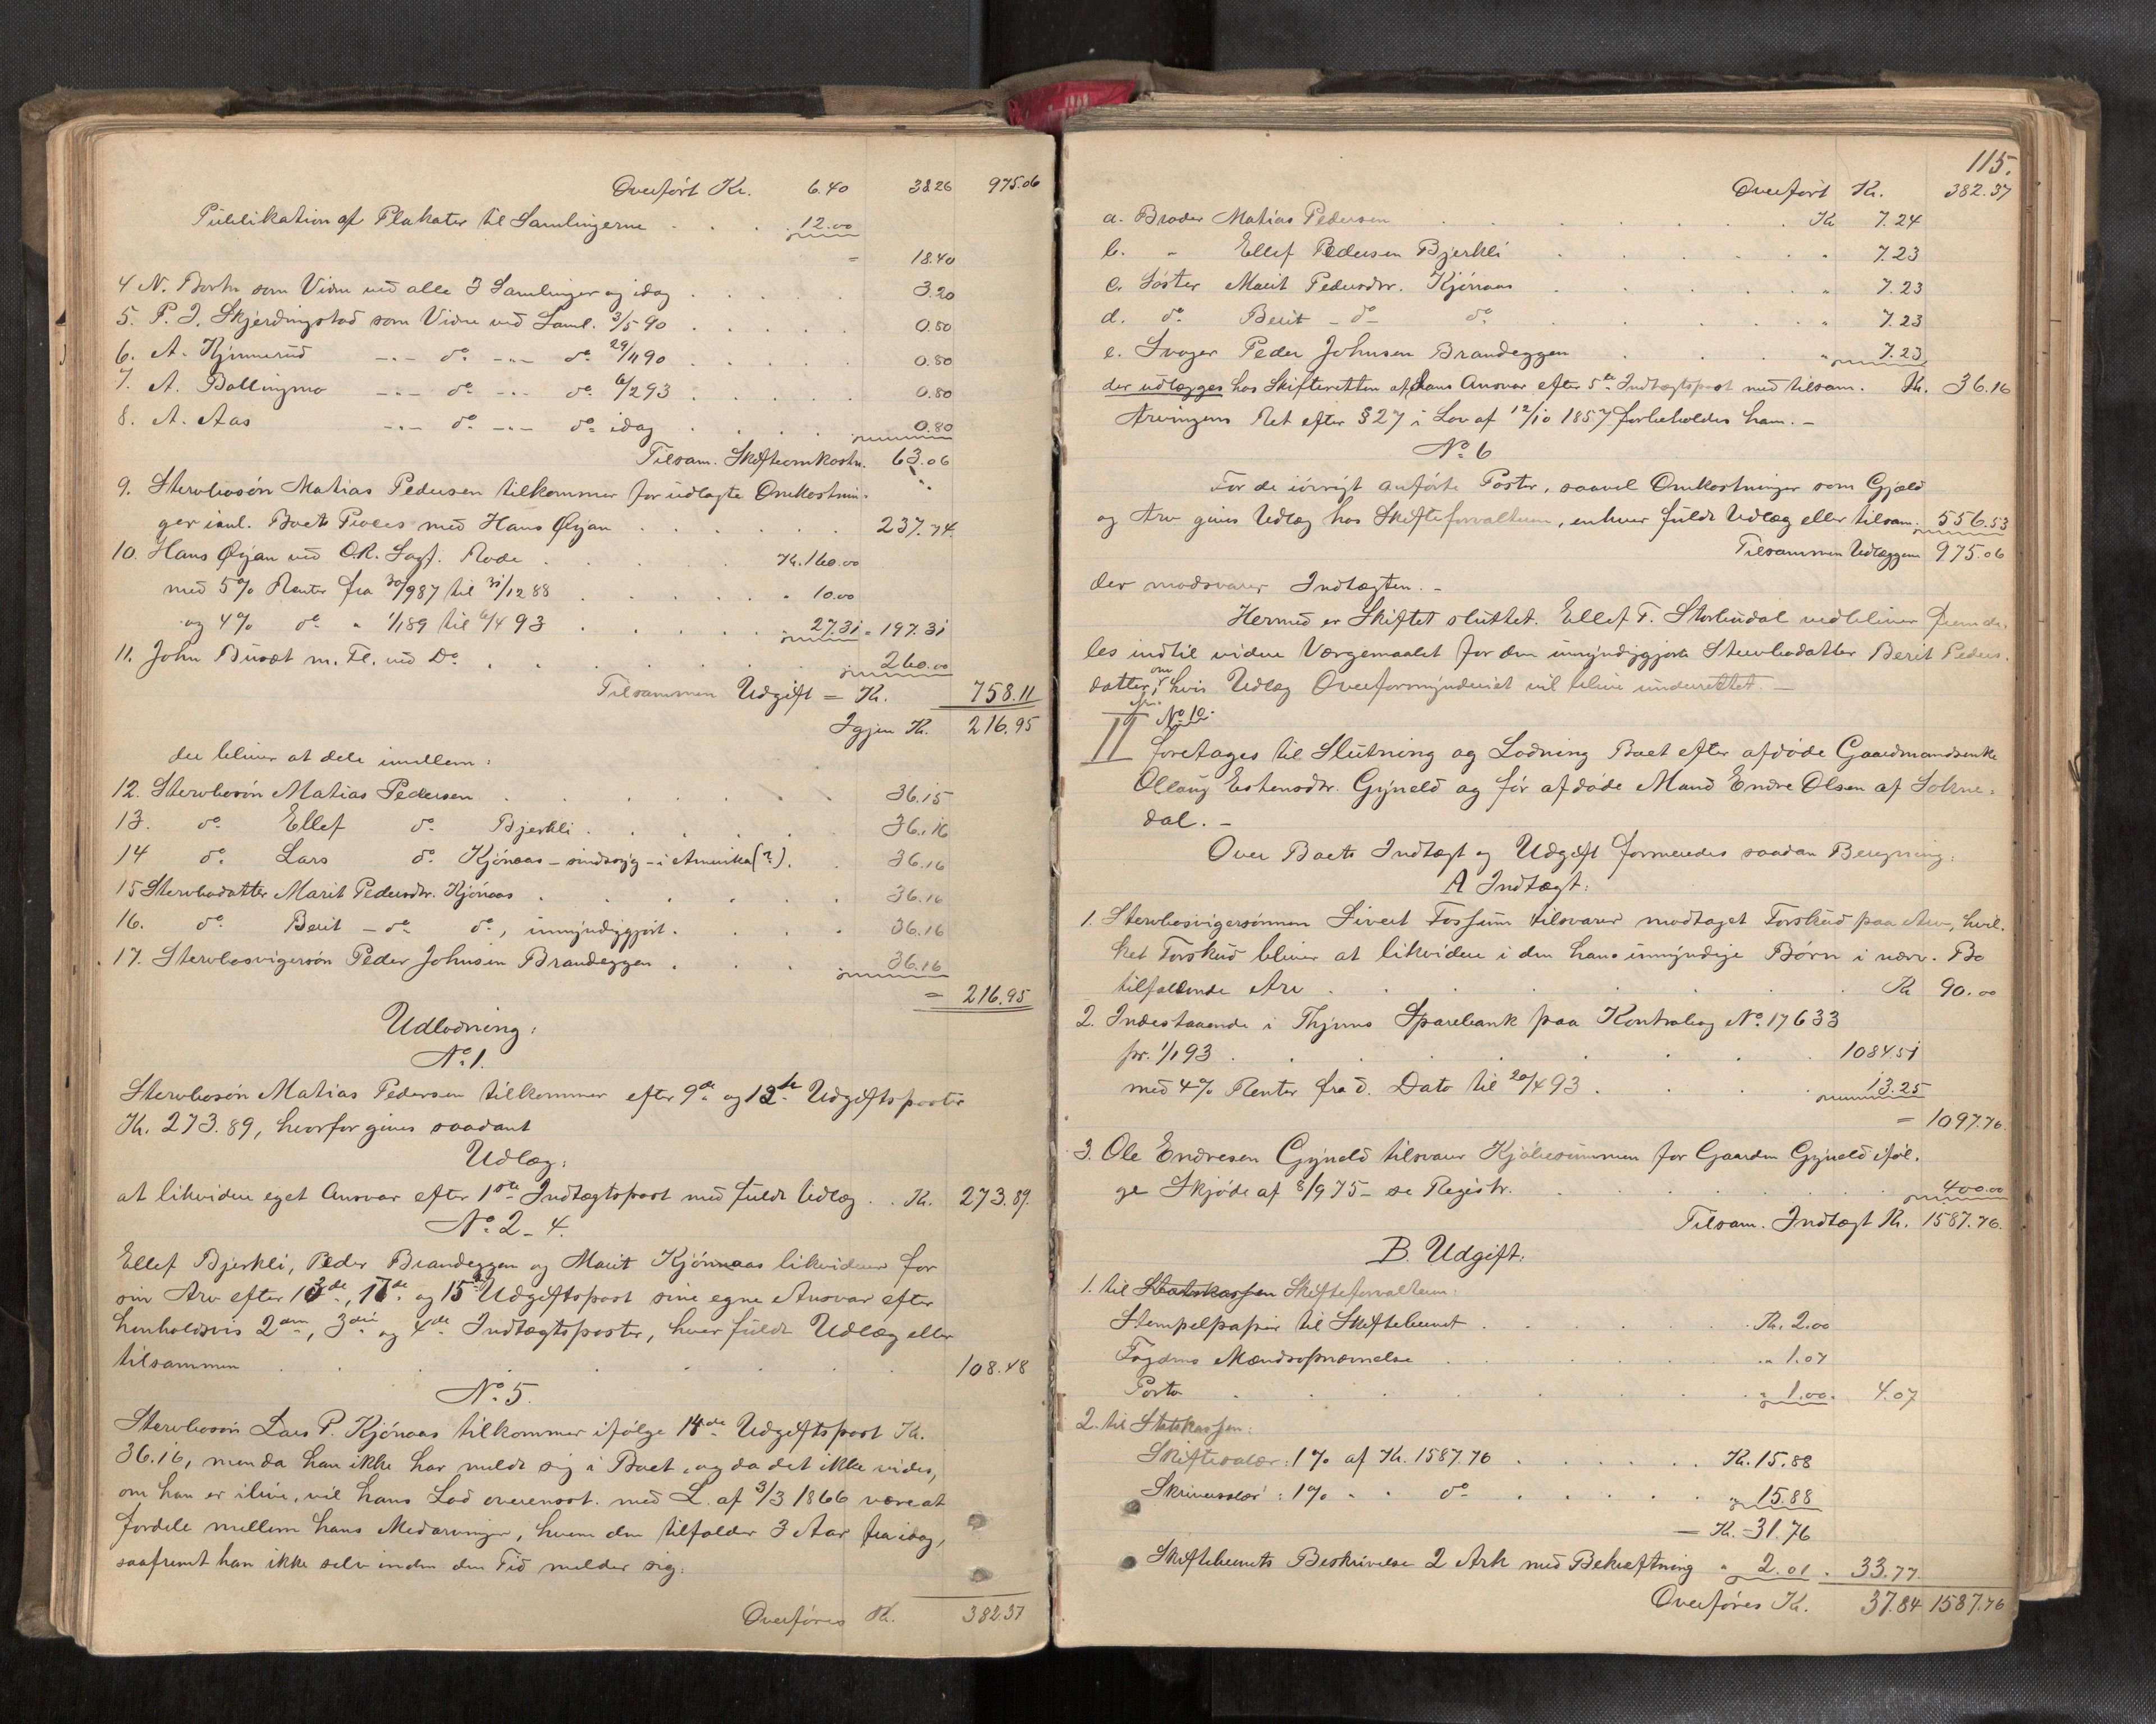 Overført Kr. 6.40 38.26 975.06
Publikation af Plakater til Samlingerne . . . 12.00
= 18.40
4 N. Borten som Vidne ved alle 3 Samlinger og idag . . . 3.20
5. P. J. Skjerdingstad som Vidne ved Saml. 3/5 90 . . . 0.80
6. A. Kjinnerud -"- do -"- do 29/11 90 . . . 0.80
7. A. Bollingmo -"- do -"- do 6/2 93 . . . 0.80
8. A. Aas -"- do -"- do idag . . . 0.80
Tilsam. Skifteomkostn. 63.06
9. Stervbosøn Matias Pedersen tilkommer for udlagte Omkostnin-
ger isml. Boets Proces med Hans Øyan . . . 237.74
10. Hans Øyan ved O.R. Sagf. Rode . . . Kr. 160.00
med 5% Renter fra 30/9 87 til 31/12 88 . . . " 10.00
og 4% do " 1/1 89 til 6/4 93 . . . 27.31 = 197.31
11. John Busæt m. Fl. ved Do . . . 260.00
Tilsammen Udgift = Kr. 758.11
Igjen Kr. 216.95
der bliver at dele imellem:
12. Stervbosøn Matias Pedersen . . . 36.15
13. do Ellef do Bjerkli . . . 36.16
14 do Lars do Kjønaas – sindssyg – i Amerika (?) . 36.16
15 Stervbodatter Marit Pedersdtr. Kjønaas . . . 36.16
16. do Berit – do do, umyndiggjort . . . 36.16
17. Stervbosvigersøn Peder Johnsen Brandeggen . . . 36.16
= 216.95
Udlodning:
No 1.
Stervbosøn Matias Pedersen tilkommer efter 9de og 12te Udgiftsposter
Kr. 273.89, hvorfor gives saadant
Udlæg:
at likvidere eget Ansvar efter 1ste Indtægtspost med fuldt Udlæg . . Kr. 273.89.
No 2 – 4.
Ellef Bjerkli, Peder Brandeggen og Marit Kjønaas likviderer for
sin Arv efter 13de, 17de og 15de Udgiftspost sine egne Ansvar efter
henholdsvis 2den, 3die og 4de Indtægtsposter, hver fuldt Udlæg eller
tilsammen . . . 108.48
No 5.
Stervbosøn Lars P. Kjønaas tilkommer ifølge 14de Udgiftspost Kr.
36.16, men da han ikke har meldt sig i Boet, og da det ikke vides,
om han er ilive, vil hans Lod overensst. med L. af 3/3 1866 være at
fordele mellem hans Medarvinger, hvem den tilfalder 3 Aar fra idag,
saafremt han ikke selv inden den Tid melder sig:
Overføres Kr. 382.37
115.
Overført Kr. 382.37
a. Broder Matias Pedersen . . . Kr. 7.24
b. " Ellef Pedersen Bjerkli . . . " 7.23
c. Søster Marit Pedersdtr. Kjønaas . . . " 7.23
d. do Berit – do – do . . . " 7.23
e. Svoger Peder Johnsen Brandeggen . . . " 7.23
der udlægges hos Skifteretten af hans Ansvar efter 5te Indtægtspost med tilsam. Kr. 36.16
Arvingens Ret efter § 27 i Lov af 12/10 1857 forbeholdes ham. –
No 6
For de iøvrigt anførte Poster, saavel Omkostninger som Gjæld
og Arv gives Udlæg hos Skifteforvalteren, enhver fuldt Udlæg eller tilsam. 556.53
Tilsammen Udlæggene 975.06
der modsvarer Indtægten. –
Hermed er Skiftet sluttet. Ellef T. Storbudal vedbliver fremde-
les indtil videre Værgemaalet for den umyndiggjorte Stervbodatter Berit Peders-
datter, om hvis Udlæg Overformynderiet vil blive underrettet. –
No 10.
II foretages til Slutning og Lodning Boet efter afdøde Gaardmandsenke
Ollaug Estensdtr. Gyneld og før afdøde Mand Endre Olsen af Sokne-
dal. –
Over Boets Indtægt og Udgift formeredes saadan Beregning:
A Indtægt:
1. Stervbosvigersønnen Sivert Fossum tilsvarer modtaget Forskud paa Arv, hvil-
ket Forskud bliver at likvidere i den hans umyndige Børn i nærv. Bo
tilfaldende Arv . . . Kr 90.00
2. Indestaaende i Thjems Sparebank paa Kontrabog No. 17633
pr. 1/1 93 . . . 1084.51
med 4% Renter fra d. Dato til 20/4 93 . . . 13.25
= 1097.76.
3. Ole Endresen Gyneld tilsvarer Kjøbesummen for Gaarden Gyneld iføl-
ge Skjøde af 8/9 75 – se Registr. . . . 400.00
Tilsam. Indtægt Kr. 1587.76.
B. Udgift:
1. til Statskassen Skifteforvalteren:
Stempelpapir til Skiftebrevet . . . Kr. 2.00
Fogdens Mændsopnævnelse . . . " 1.07
Porto . . . " 1.00. 4.07
2. til Statskassen:
Skiftesalær: 1% af Kr. 1587.76 . . . Kr. 15.88
Skriversalær: 1% " " do . . . " 15.88
– Kr. – 31.76
Skiftebrevets Beskrivelse 2 Ark med Bekræftning " 2.01. 33.77.
Overføres Kr. 37.84 1587.76